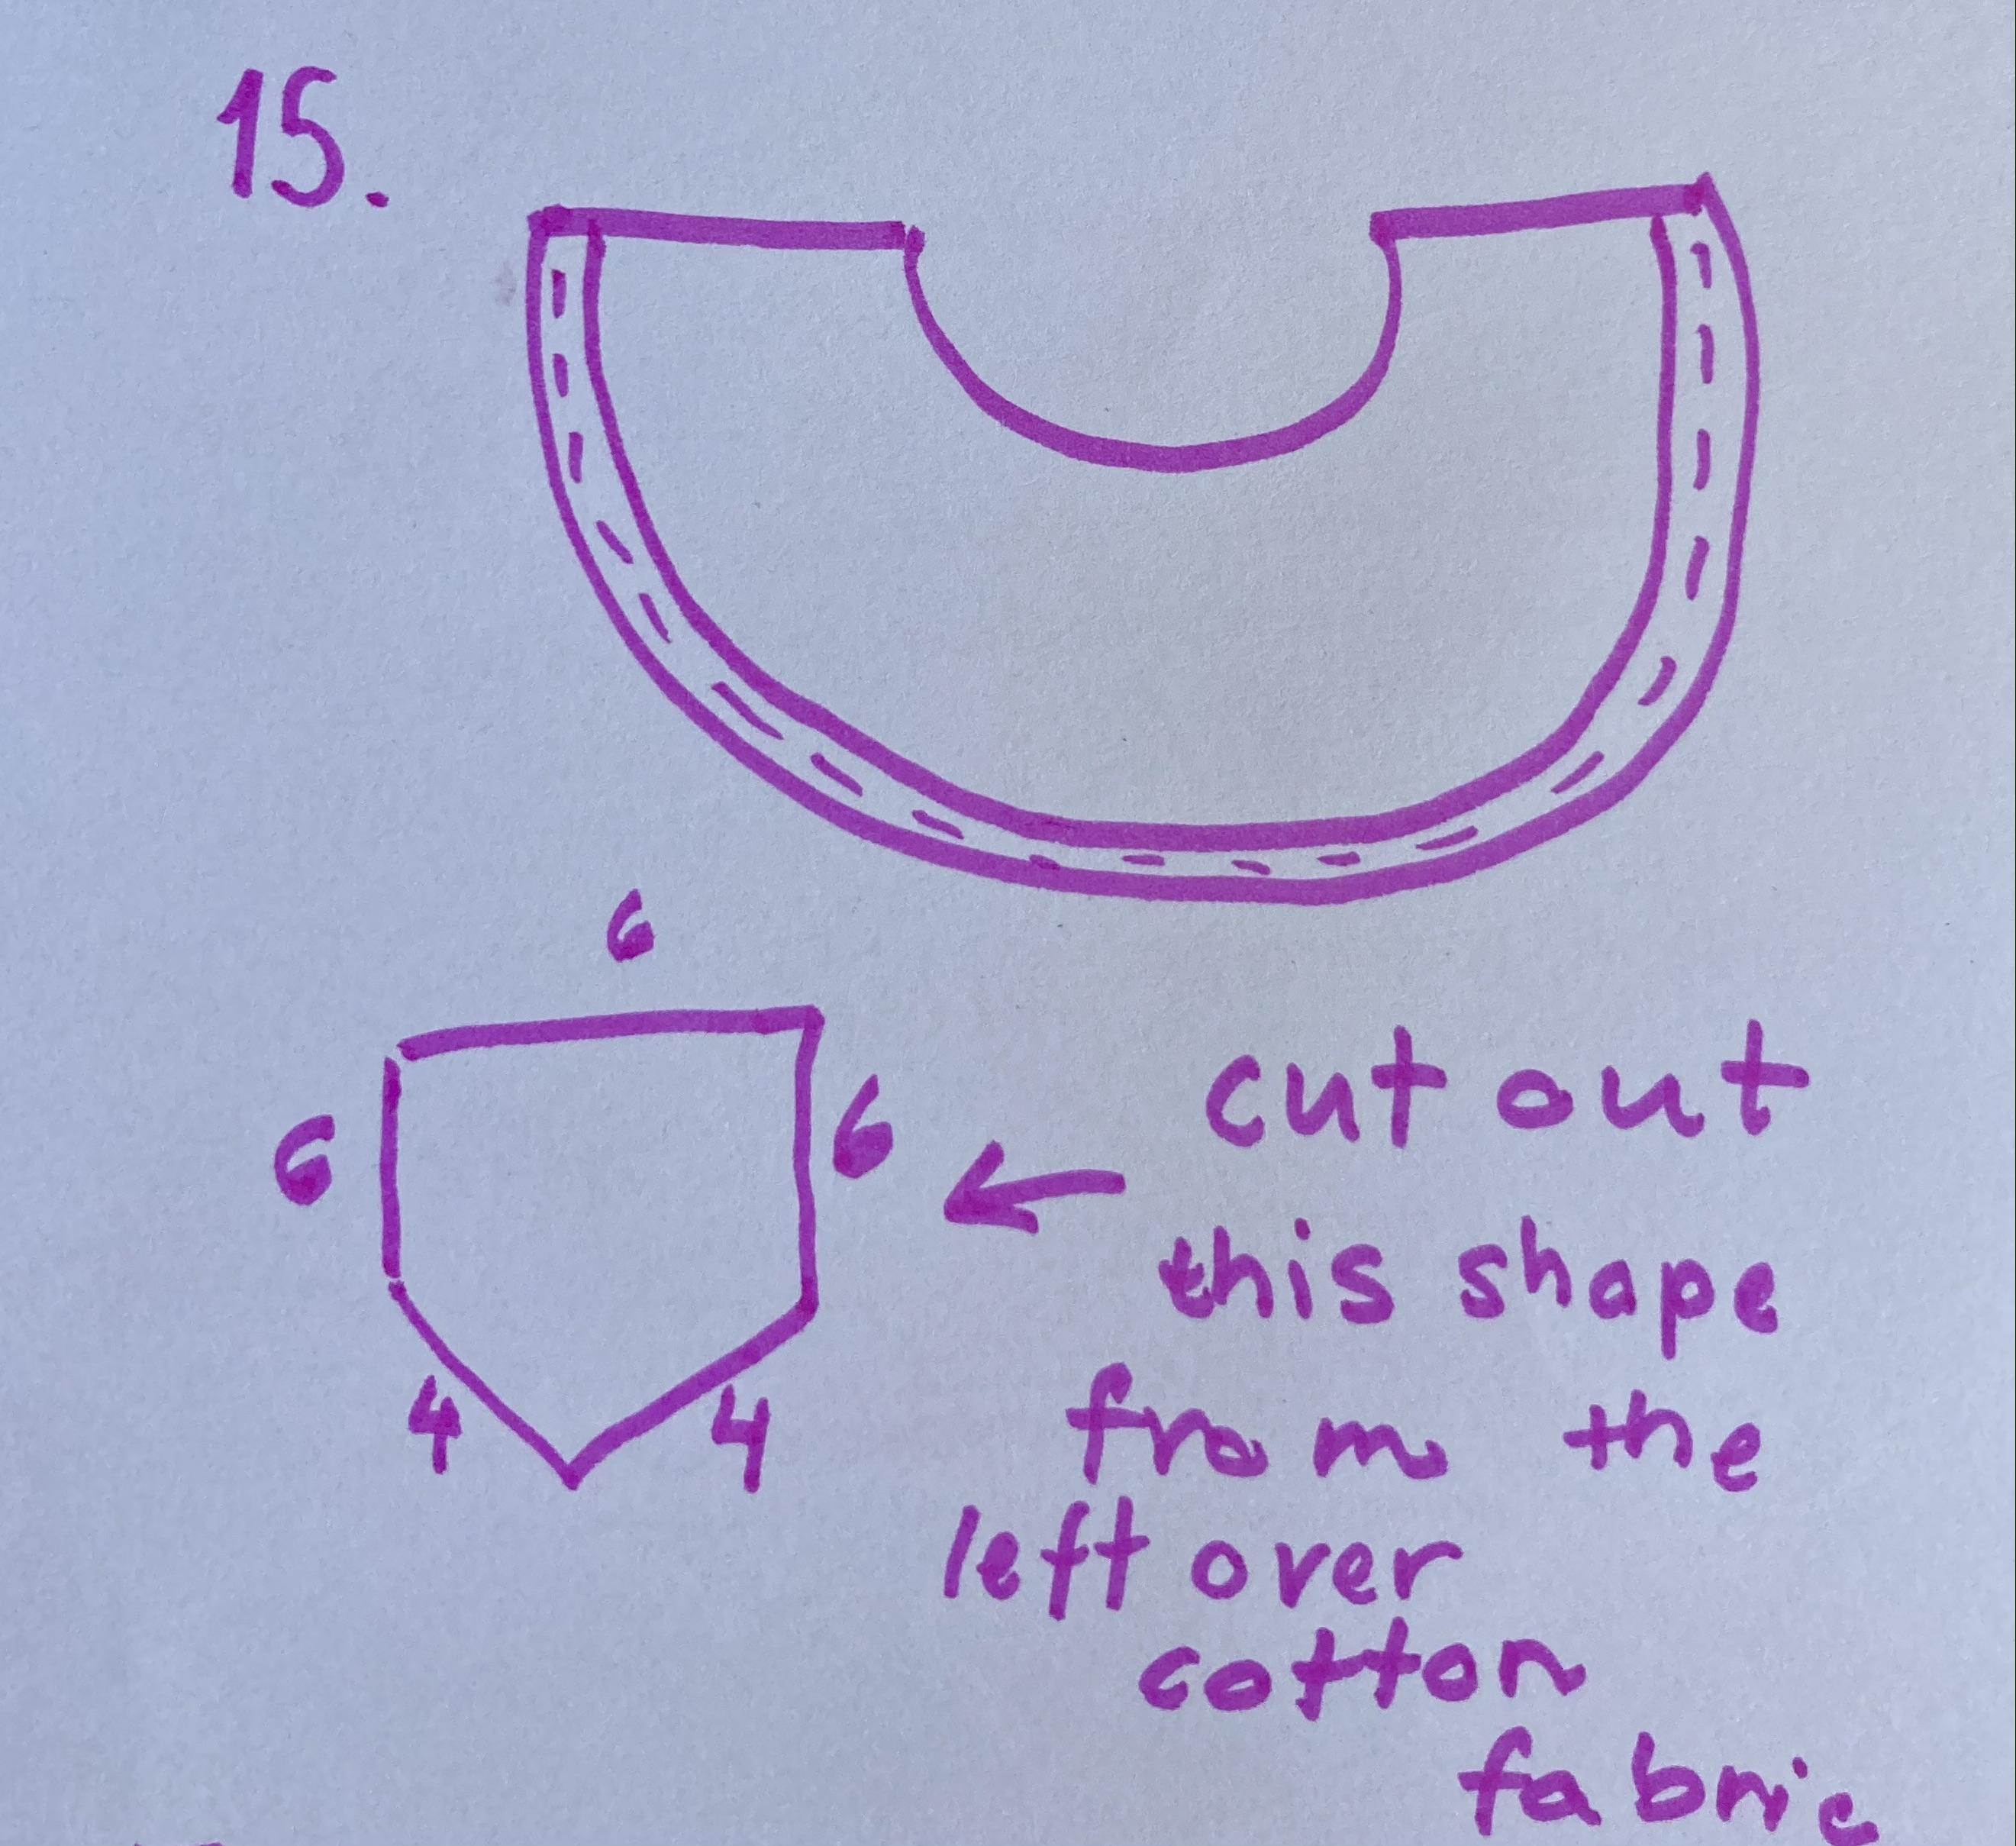 15.
6
6
6
4
4
cut out
this shape
from the
left over
cotton
fabric